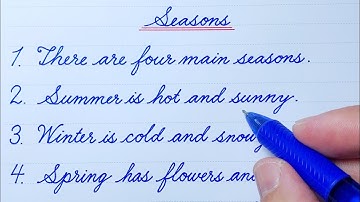 Seasons
1. There are four main seasons.
2. Summer is hot and sunny.
3. Winter is cold and snowy
4. Spring has flowers and